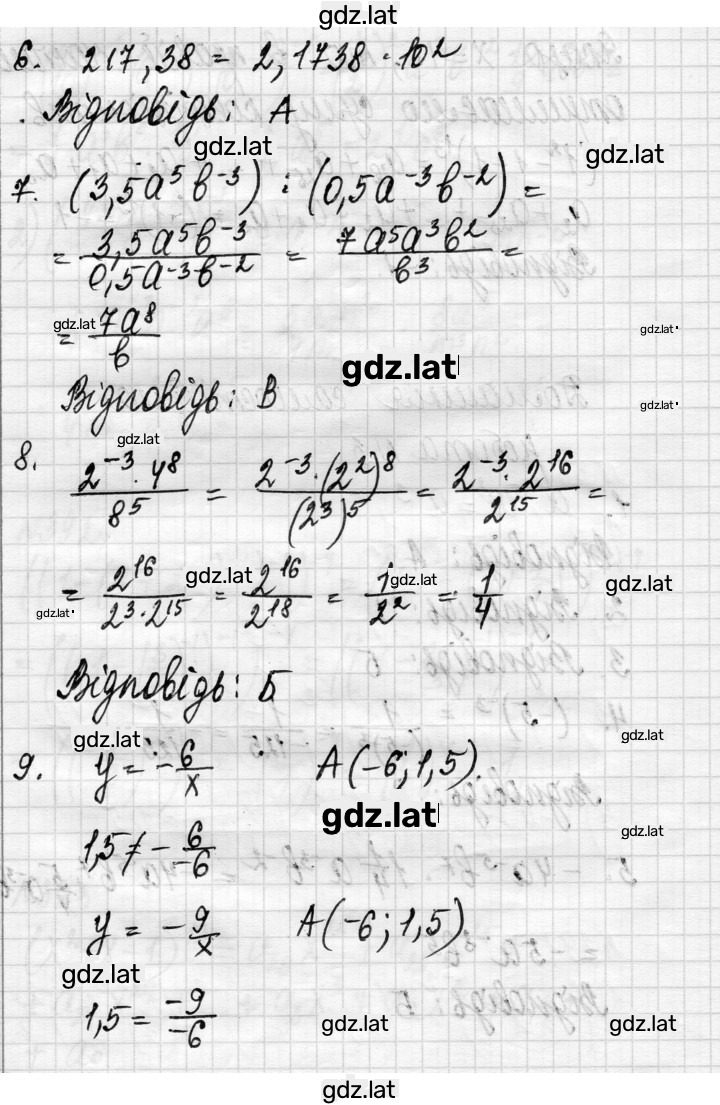 gdz.lat
6. 217,38 = 2,1738 · 10²
Відповідь: А
gdz.lat
gdz.lat
7. (3,5a⁵b⁻³) : (0,5a⁻³b⁻²) =
= 3,5a⁵b⁻³/0,5a⁻³b⁻² = 7a⁵a³b²/b³ =
gdz.lat
= 7a⁸/b
gdz.lat
gdz.lat
Відповідь: В
gdz.lat
gdz.lat
8. 2⁻³·4⁸/8⁵ = 2⁻³·(2²)⁸/(2³)⁵ = 2⁻³·2¹⁶/2¹⁵ =
= 2¹⁶/2³·2¹⁵ = 2¹⁶/2¹⁸ = 1/2² = 1/4
gdz.lat
gdz.lat
gdz.lat
gdz.lat
Відповідь: Б
gdz.lat
gdz.lat
9. y = -6/x A(-6; 1,5)
gdz.lat
gdz.lat
1,5 ≠ - 6/-6
y = -9/x A(-6; 1,5)
gdz.lat
1,5 = -9/-6
gdz.lat
gdz.lat
gdz.lat